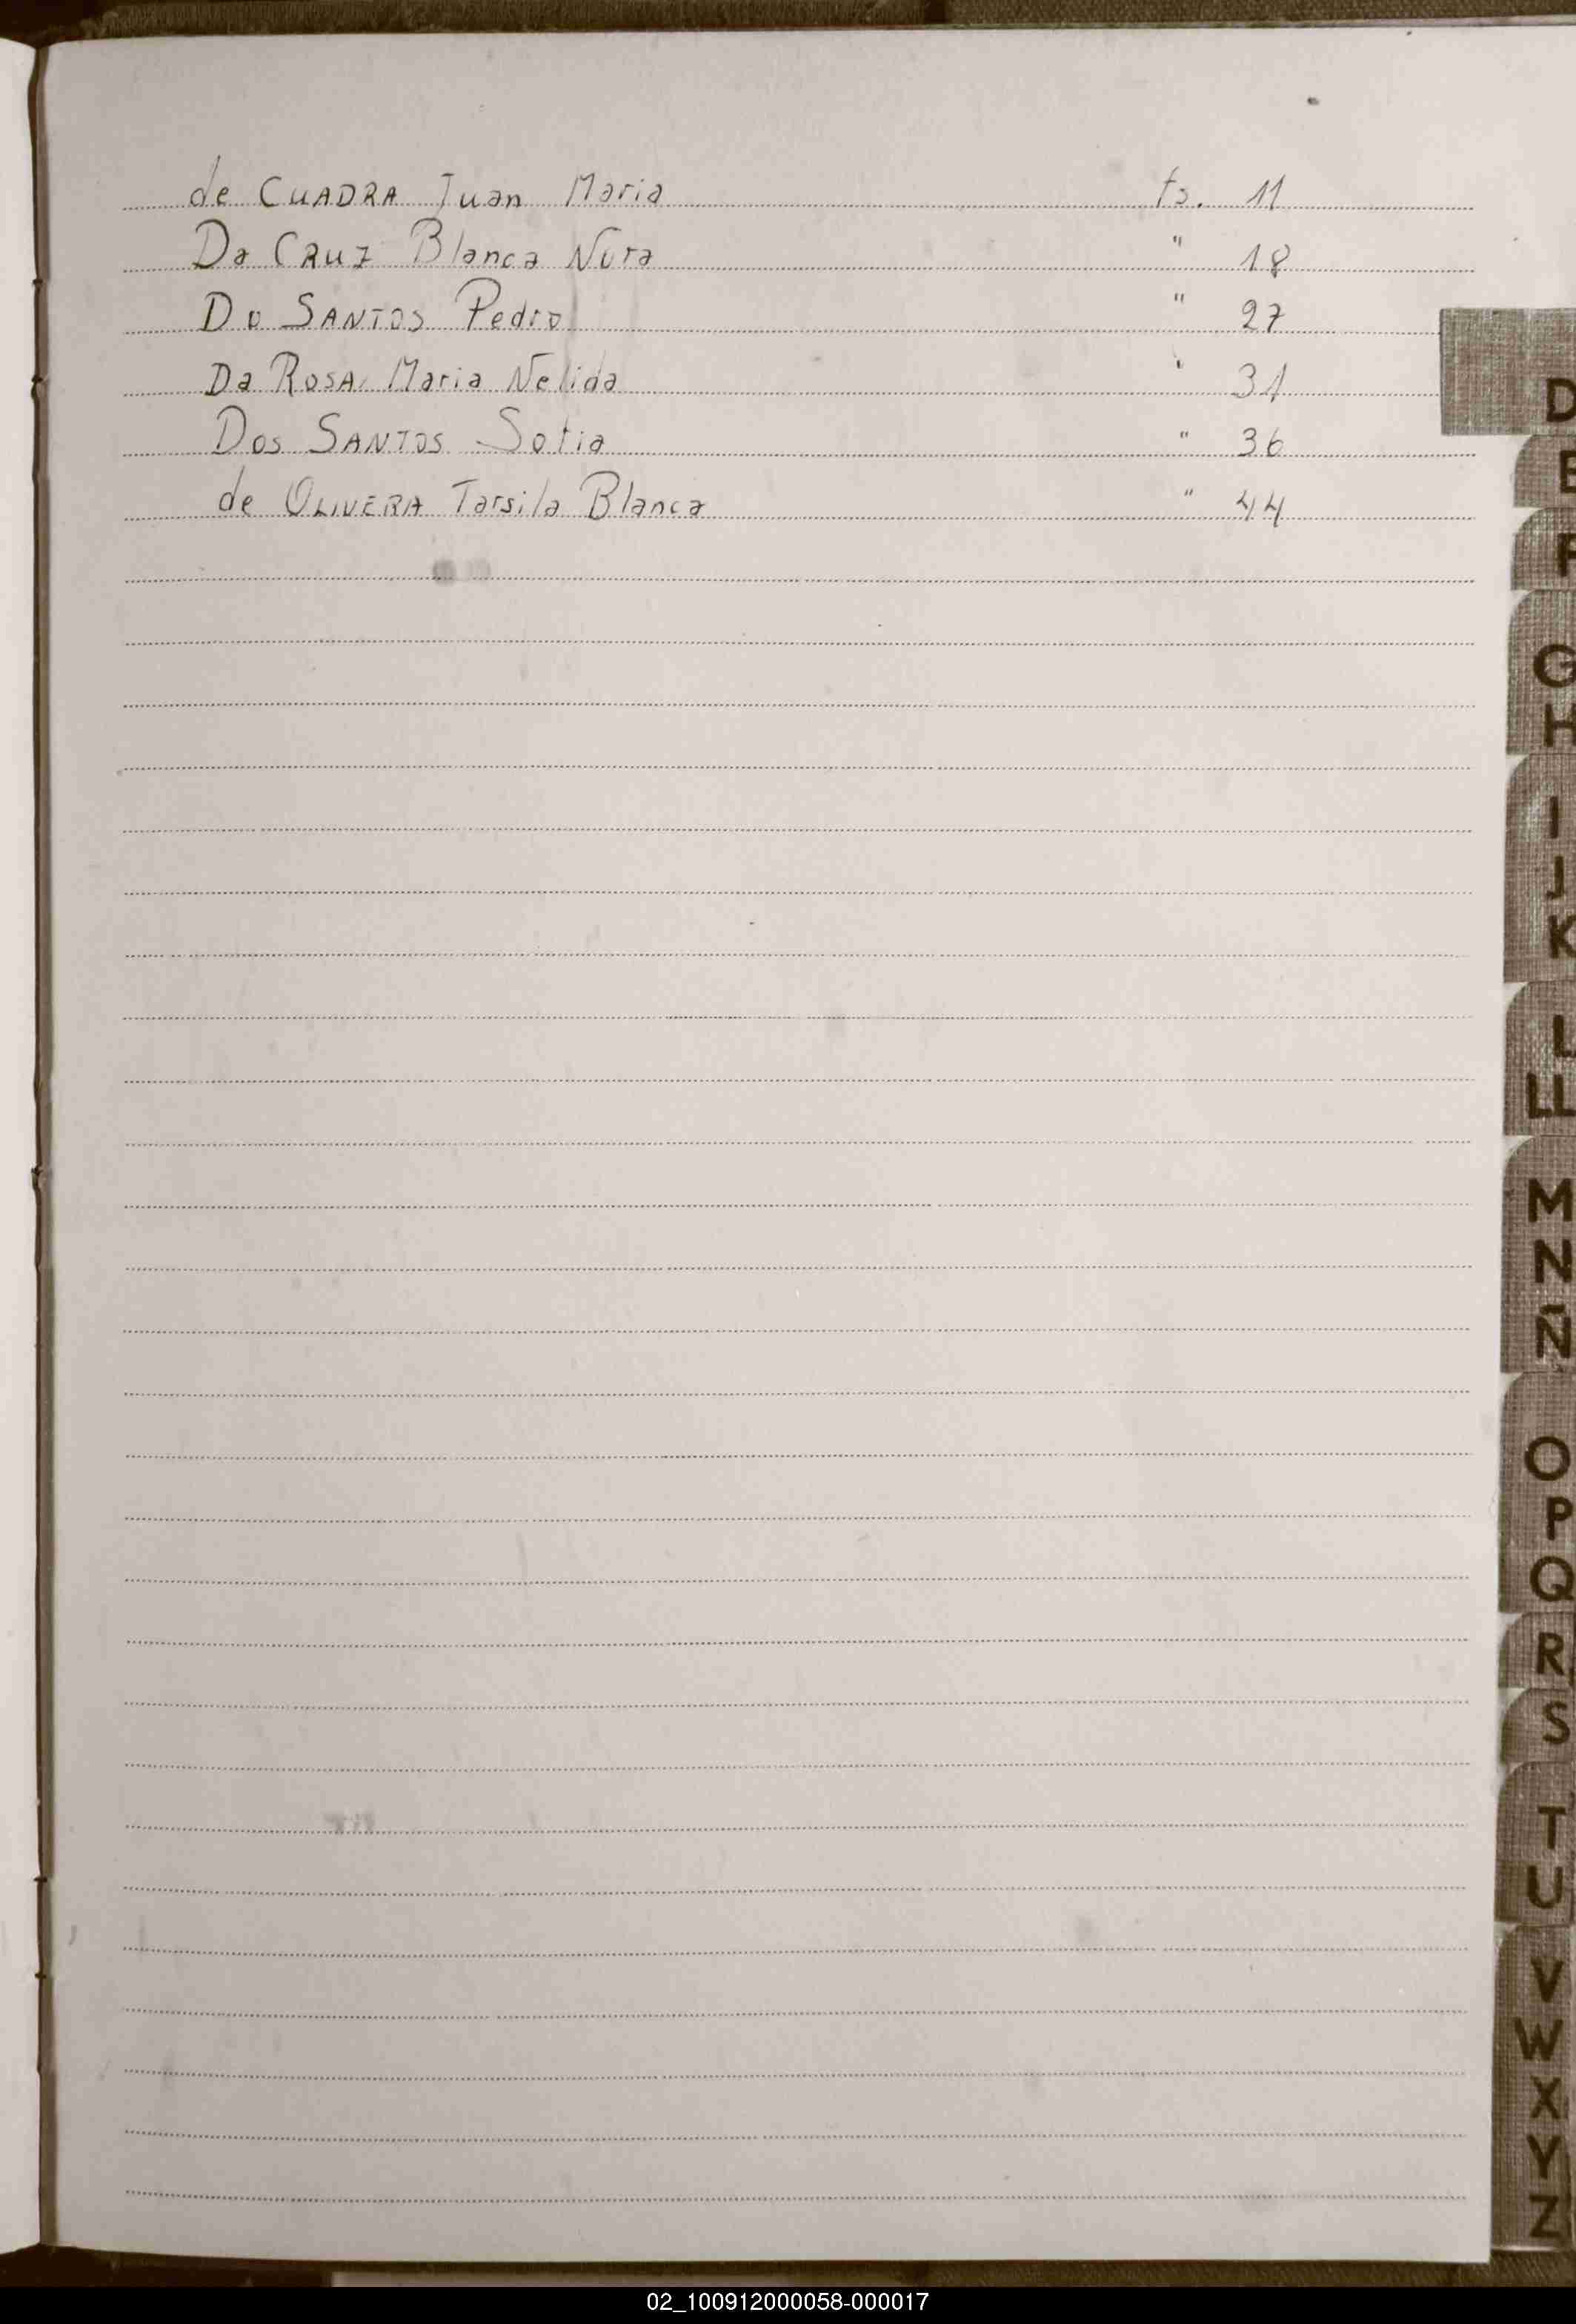 de CUADRA Juan Maria fs. 11
Da CRUZ Blanca Nora " 18
Do SANTOS Pedro " 27
Da ROSA Maria Nelida " 31
Dos SANTOS Sofia " 36
de OLIVERA Tarsila Blanca " 44
D
E
F
G
H
I
J
K
L
LL
M
N
Ñ
O
P
Q
R
S
T
U
V
W
X
Y
Z
02_100912000058-000017